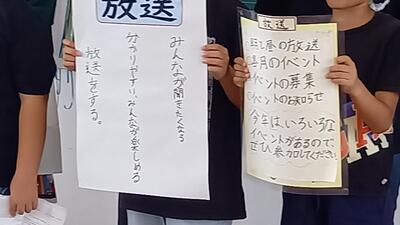 放送
みんなが聞きたくなる
分かりやすい、みんなが楽しめる
放送をする。
放送
朝と昼の放送
毎月のイベント
イベントの募集
イベントのお知らせ
今年は、いろいろな
イベントがあるので、
ぜひ参加してください